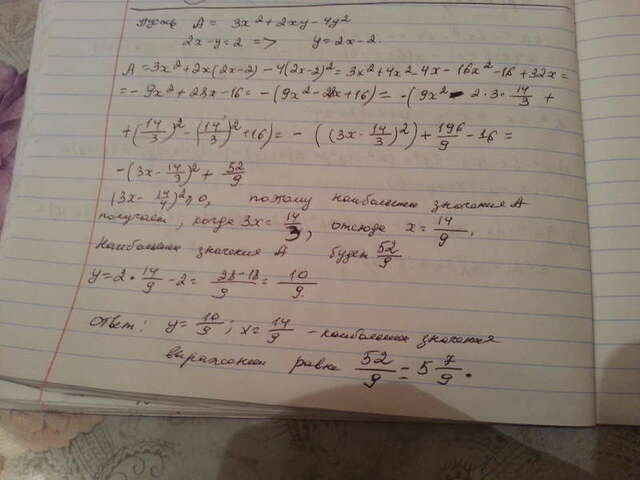 Пусть A = 3x² + 2xy - 4y²
2x - y = 2 => y = 2x - 2.
A = 3x² + 2x(2x-2) - 4(2x-2)² = 3x² + 4x² - 4x - 16x² - 16 + 32x =
= - 9x² + 28x - 16 = - (9x² - 28x + 16) = - (9x² - 2·3·14/3 +
+ (14/3)² - (14/3)² + 16) = - ((3x - 14/3)²) + 196/9 - 16 =
- (3x - 14/3)² + 52/9
(3x - 14/4)² ≥ 0, поэтому наибольшее значения A
получаем, когда 3x = 14/3, отсюда x = 14/9,
Наибольшее значения A будет 52/9.
y = 2 · 14/9 - 2 = 28-18/9 = 10/9.
Ответ: y = 10/9; x = 14/9 - наибольшее значения
выражения равна 52/9 = 5 7/9.